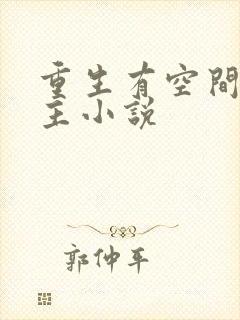 重生有空間
主小說
郭仲平